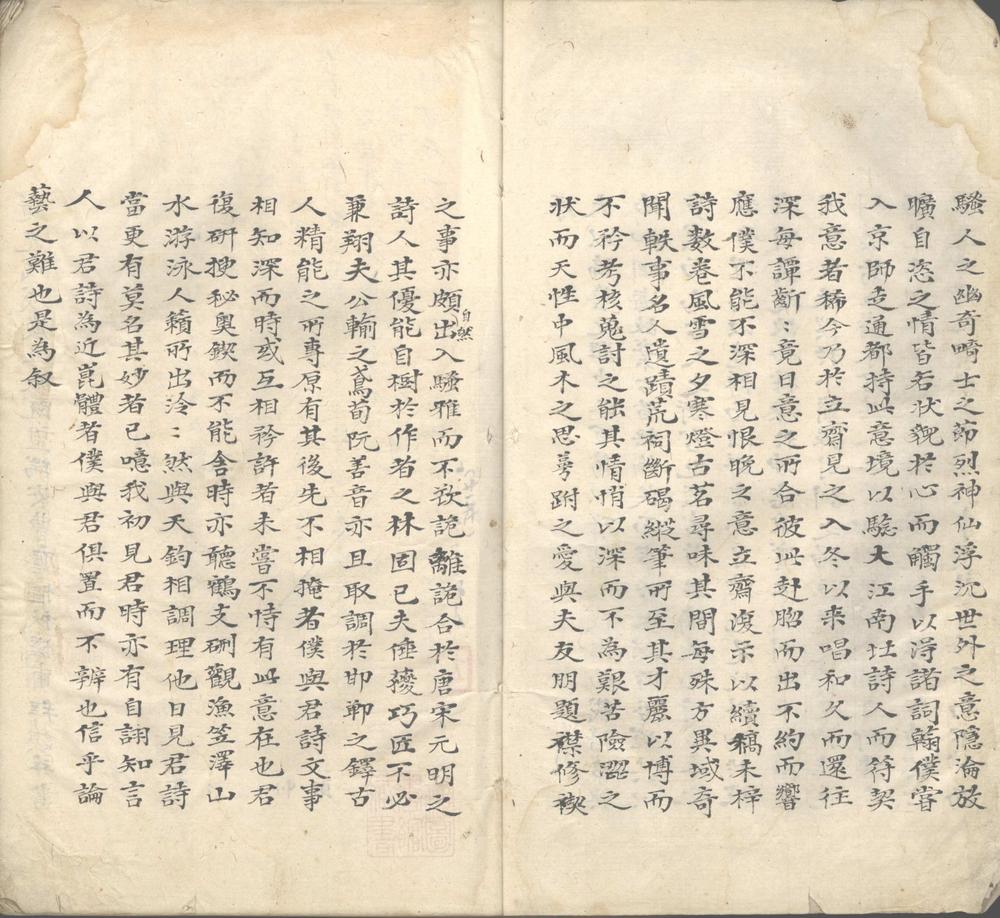 騷人之幽奇畸士之節烈神仙浮沉世外之意隱淪放
曠自恣之情皆名狀覿於心而觸手以淂諸詞翰僕嘗
入京師走通都持此意境以騐大江南北詩人而符契
我意者稀今乃於立齋見之入冬以來唱和久而還往
深每譚斷〻竟日意之所合彼此赴脗而出不約而響
應僕不能不深相見恨晚之意立齋復示以續稿未梓
詩数卷風雪之夕寒燈古茗尋味其間每殊方異域奇
聞軼事名人遺蹟荒祠斷碣縱筆所至其才麗以博而
不矜考核蒐討之能其情悄以深而不為艱苦險澀之
狀而天性中風木之思萼跗之愛與夫友朋題襟修禊
之事亦頗自然出入騷雅而不欲詭離詭合於唐宋元明之
詩人其優能自樹於作者之林固已夫倕㹛巧匠不必
兼翔夫公輸之鳶荀阮善音亦且取調於邯鄲之鐸古
人精能之所專原有其後先不相掩者僕與君詩文事
相知深而時或互相矜許者未嘗不恃有此意在也君
復研搜秘奥鍥而不能舍時亦聽鶴支硎觀漁笠澤山
水游泳人籟所出泠〻然與天鈞相調理他日見君詩
當更有莫名其妙者已噫我初見君時亦有自詡知言
人以君詩為近崑體者僕與君俱置而不辨也信乎論
藝之難也是為叙